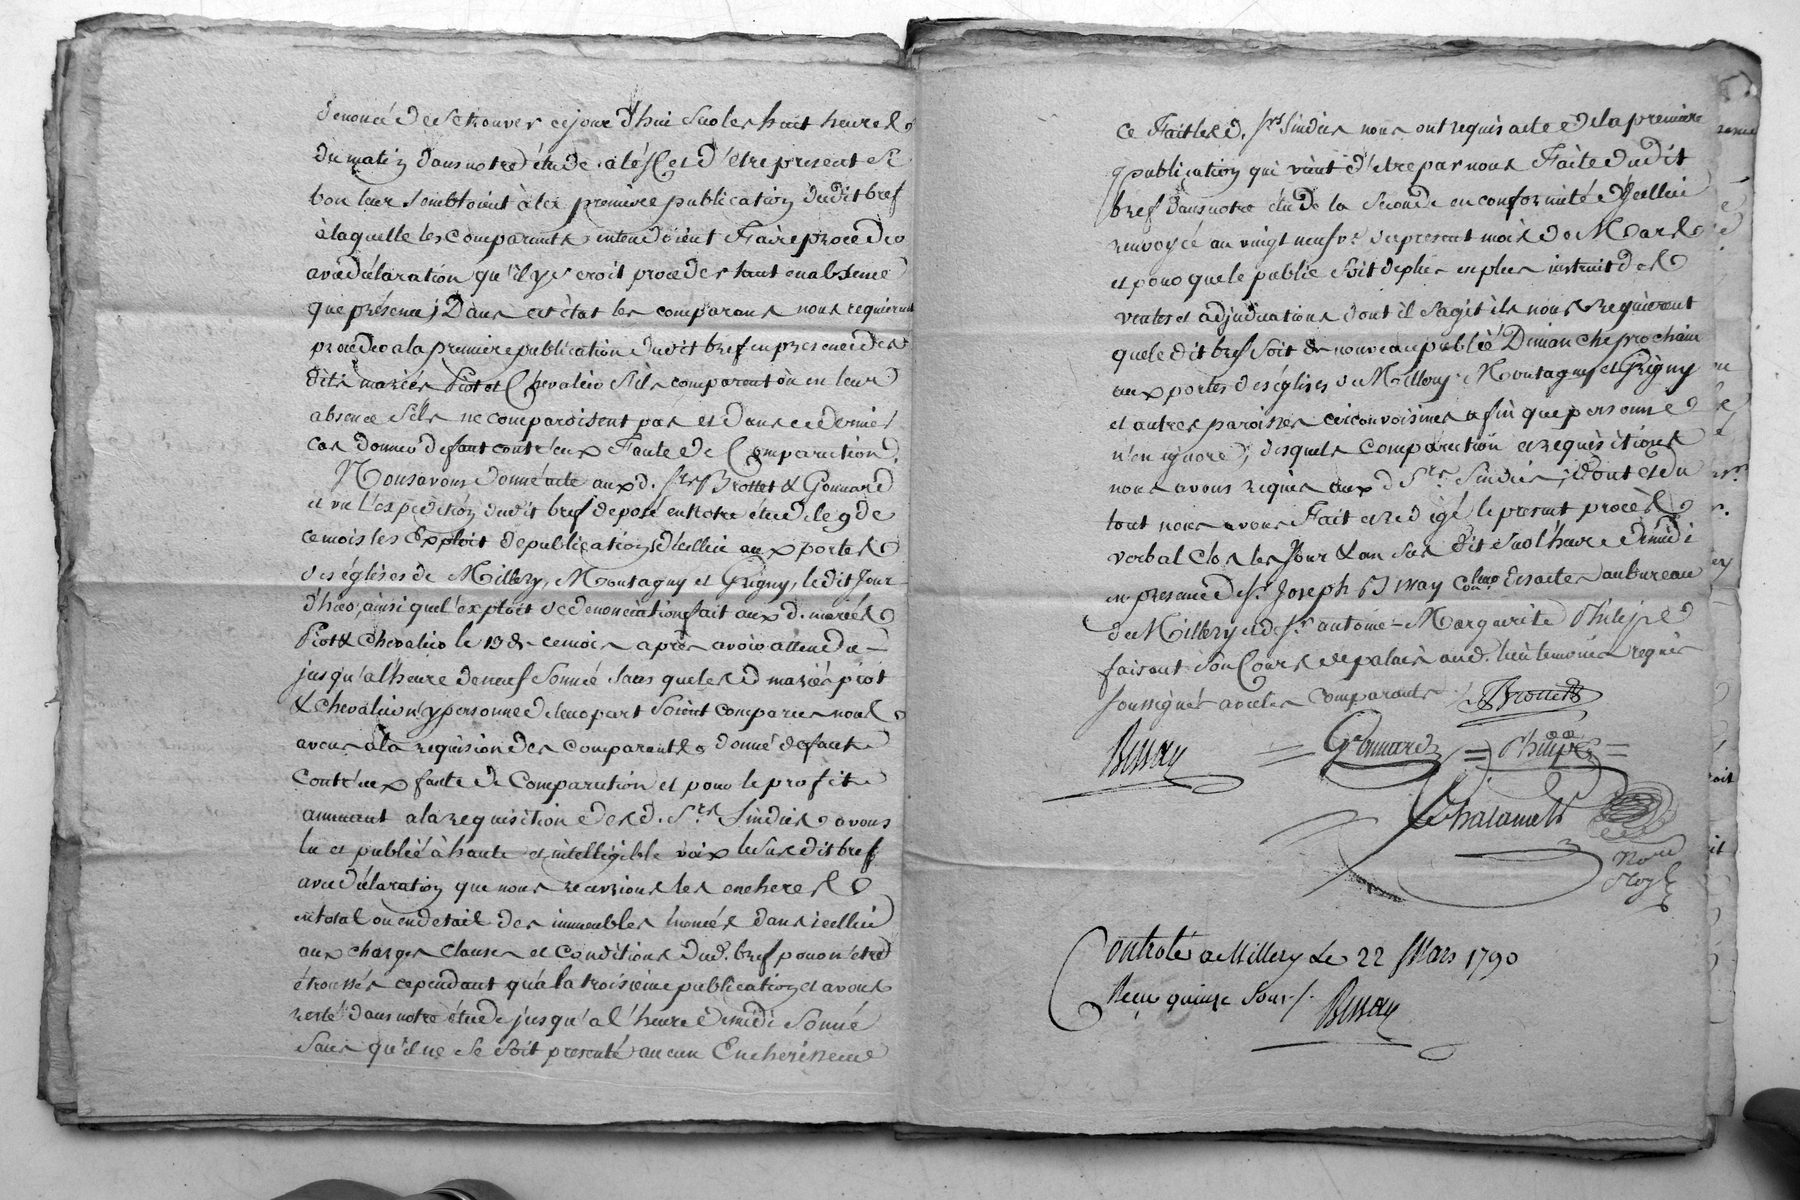 denoncé de se trouver cejourd'huì sur les huit heures
du matin dans notre étude a l'effet d'etre present si
bon leur sembloient à la premiere publication dudit bref
à laquelle les comparants intendoient Faire proceder
avec déclaration qu'il y seroit procedé tant en absence
que présence; Dans cet état les comparans nous requierent
proceder a la premiere publication dudit bref en presence des
dits mariés Piot et Chevalier s'ils comparent ou en leur
absence s'ils ne comparoissent pas et dans ce dernier
cas donner defaut contr'eux Faute de Comparution.
Nous avons donné acte aux d. Srs Brottet & Gonnard
et vu l'expedition dudit bref deposé en notre étude le 9 de
ce mois les Exploit de publication d'icellui aux portes
des églises de Millery, Montagny et Grigny, ledit jour
d'hier, ainsi que l'exploit de denonciation fait aux d. mariés
Piot & Chevalier le 19 de ce mois après avoir attendu
jusqu'a l'heure de neuf sonnée sans que les d mariés piot
& chevalier ny personne de leur part soient comparus nous
avons a la requision des comparants donné defaut
contr'eux faute de Comparution et pour le profit
ammenant a la requisition des d. Srs Sindics avons
lu et publié à haute et intelligible voix le susdit bref
avec déclaration que nous recevrions les encheres
en total ou en detail des immeubles énoncés dans icellui
aux charges clauses et conditions dud. bref pour n'etre
étroussés cependant qu'à la troisieme publication et avons
resté dans notre étude jusqu'a l'heure de midi sonné
sans qu'il ne se soit presenté aucun Encherisseur
ce Fait les d. Srs Sindics nous ont requis acte de la premiere
publication qui vient d'etre par nous Faite dudit
bref dans notre étude la seconde en conformité d'icellui
renvoyée au vingt neuf du present mois de Mars
et pour que le public soit de plus en plus instruit des
ventes et adjudications dont il s'agit ils nous requierent
que le dit bref soit de nouveau publié Dimanche prochain
aux portes des églises de Millery Montagny et Grigny
et autres paroisses circonvoisines afin que personne
n'en ignore, desquels comparution et requisitions
nous avons requis aux d Srs Sindics, dont et du
tout nous avons Fait et redigé le present procès
verbal clos les Jour & an susdit sur l'heure de midi
en presence de Sr. Joseph Bissay Colleur Des actes au bureau
de Millery et de Sr antoine Marguerite Philipe
faisant son Cours de palais aud. lieu temoins requis
soussignés avec les comparants /. Brottet
Bissay = Gonnard = Philipe =
Chalamel
Nore
Royl
Controlé a Millery Le 22 Mars 1790
Recu quinze Sous /.
Bissay